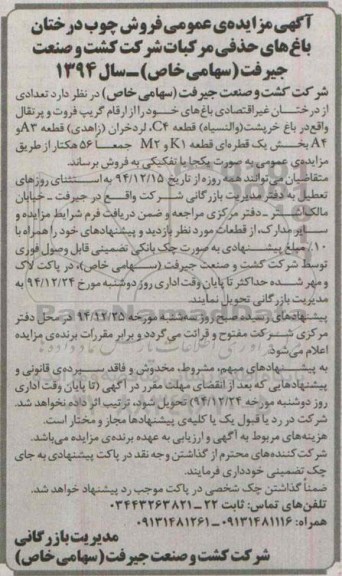 آگهی مزایده‌ی عمومی فروش چوب درختان
باغ‌های حذفی مرکبات شرکت کشت و صنعت
جیرفت (سهامی خاص) ـ سال ۱۳۹۴
شرکت کشت و صنعت جیرفت (سهامی خاص) در نظر دارد تعدادی
از درختان غیراقتصادی باغ‌های خود را از ارقام گریپ فروت و پرتقال
واقع در باغ خریشت (والنسیاه) قطعه C۴، لردخزان (زاهدی) قطعه A۳ و
A۴ بخش یک قطره‌ای قطعه K۱ و M۲ جمعاً ۵۶ هکتار از طریق
مزایده‌ی عمومی به صورت یکجا یا تفکیکی به فروش برساند.
متقاضیان می‌توانند همه روزه از تاریخ ۹۴/۱۲/۱۵ به استثنای روزهای
تعطیل به دفتر مدیریت بازرگانی شرکت واقع در جیرفت ـ خیابان
مالک‌اشتر ـ دفتر مرکزی مراجعه و ضمن دریافت فرم شرایط مزایده و
سایر مدارک، از قطعات مورد نظر بازدید و پیشنهادهای خود را همراه با
۱۰٪ مبلغ پیشنهادی به صورت چک بانکی تضمینی قابل وصول فوری
توسط شرکت کشت و صنعت جیرفت (سهامی خاص)، در پاکت لاک
و مهر شده حداکثر تا پایان وقت اداری روز دوشنبه مورخ ۹۴/۱۲/۲۴ به
مدیریت بازرگانی تحویل نمایند.
پیشنهادهای رسیده صبح روز سه‌شنبه مورخه ۹۴/۱۲/۲۵ در محل دفتر
مرکزی شرکت مفتوح و قرائت می‌گردد و برابر مقررات برنده‌ی مزایده
اعلام می‌شود.
به پیشنهادهای مبهم، مشروط، مخدوش و فاقد سپرده‌ی قانونی و
پیشنهادهایی که بعد از انقضای مهلت مقرر در آگهی (تا پایان وقت اداری
روز دوشنبه مورخه ۹۴/۱۲/۲۴) تحویل شود، ترتیب اثر داده نخواهد شد.
شرکت در رد یا قبول یک یا کلیه‌ی پیشنهادها مجاز و مختار است.
هزینه‌های مربوط به آگهی و ارزیابی به عهده برنده‌ی مزایده می‌باشد.
شرکت کننده‌های محترم از گذاشتن وجه نقد در پاکت پیشنهادی به جای
چک تضمینی خودداری فرمایند.
ضمناً گذاشتن چک شخصی در پاکت موجب رد پیشنهاد خواهد شد.
تلفن‌های تماس: ثابت ۲۲ ـ ۰۳۴۴۳۲۶۳۸۲۱
همراه: ۰۹۱۳۱۴۸۱۱۱۶ ـ ۰۹۱۳۱۴۸۱۲۶۱
مدیریت بازرگانی
شرکت کشت و صنعت جیرفت (سهامی خاص)